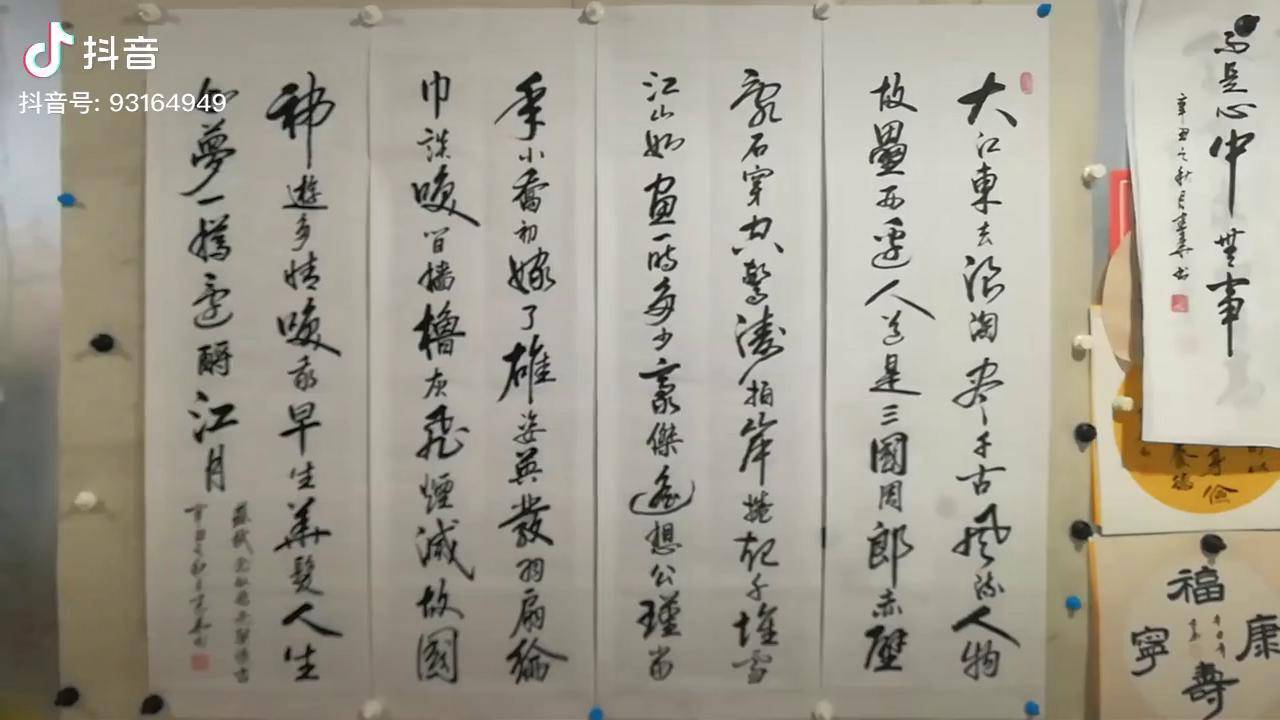 抖音
抖音号: 93164949
大江東去浪淘盡千古風流人物
故壘西邊人道是三國周郎赤壁
亂石穿空驚濤拍岸捲起千堆雪
江山如畫一時多少豪傑遙想公瑾當
年小喬初嫁了雄姿英發羽扇綸
巾談咲間檣櫓灰飛煙滅故國
神遊多情咲我早生華髮人生
如夢一樽還酹江月
蘇軾念奴嬌赤壁懷古
辛丑之秋月
是心中無事
辛丑之秋月
福
壽
康
寧